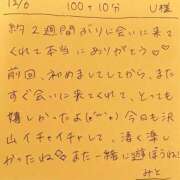 12/6 100+10分 U様
約2週間ぶりに会いに来て
くれて本当にありがとう♡♡
前回、初めましてしてから、また
すぐ会いに来てくれて、とっても
嬉しかったよ(*´`*)今日も沢
山イチャイチャして、凄く楽し
かったね♡また一緒に遊ぼうね!
みと